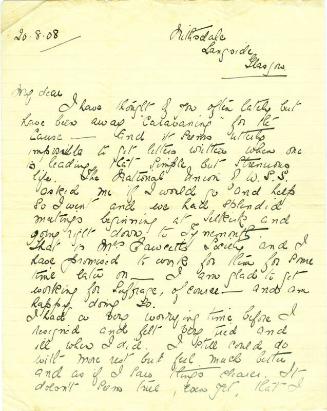 20.8.08
Nithsdale
Langside
Glasgow
My dear
I have thought of you often lately but
have been away "Caravaning" for the
Cause — and it seems utterly
impossible to get letters written when one
is leading that simple, but strenuous
life. The National Union of W.S.S.
asked me if I would go and help
so I went and we had splendid
meetings beginning at Selkirk and
going right down to Tynemouth.
That is Mrs Fawcetts Society and I
have promised to work for them for some
time later on — I am glad to get
working for Suffrage, of course — and am
happy doing so.
I had a very worrying time before I
resigned and felt very tired and
ill when I did. I still could do
with more rest but feel much better
and as if I saw things clearer. It
doesn't seem true, that I